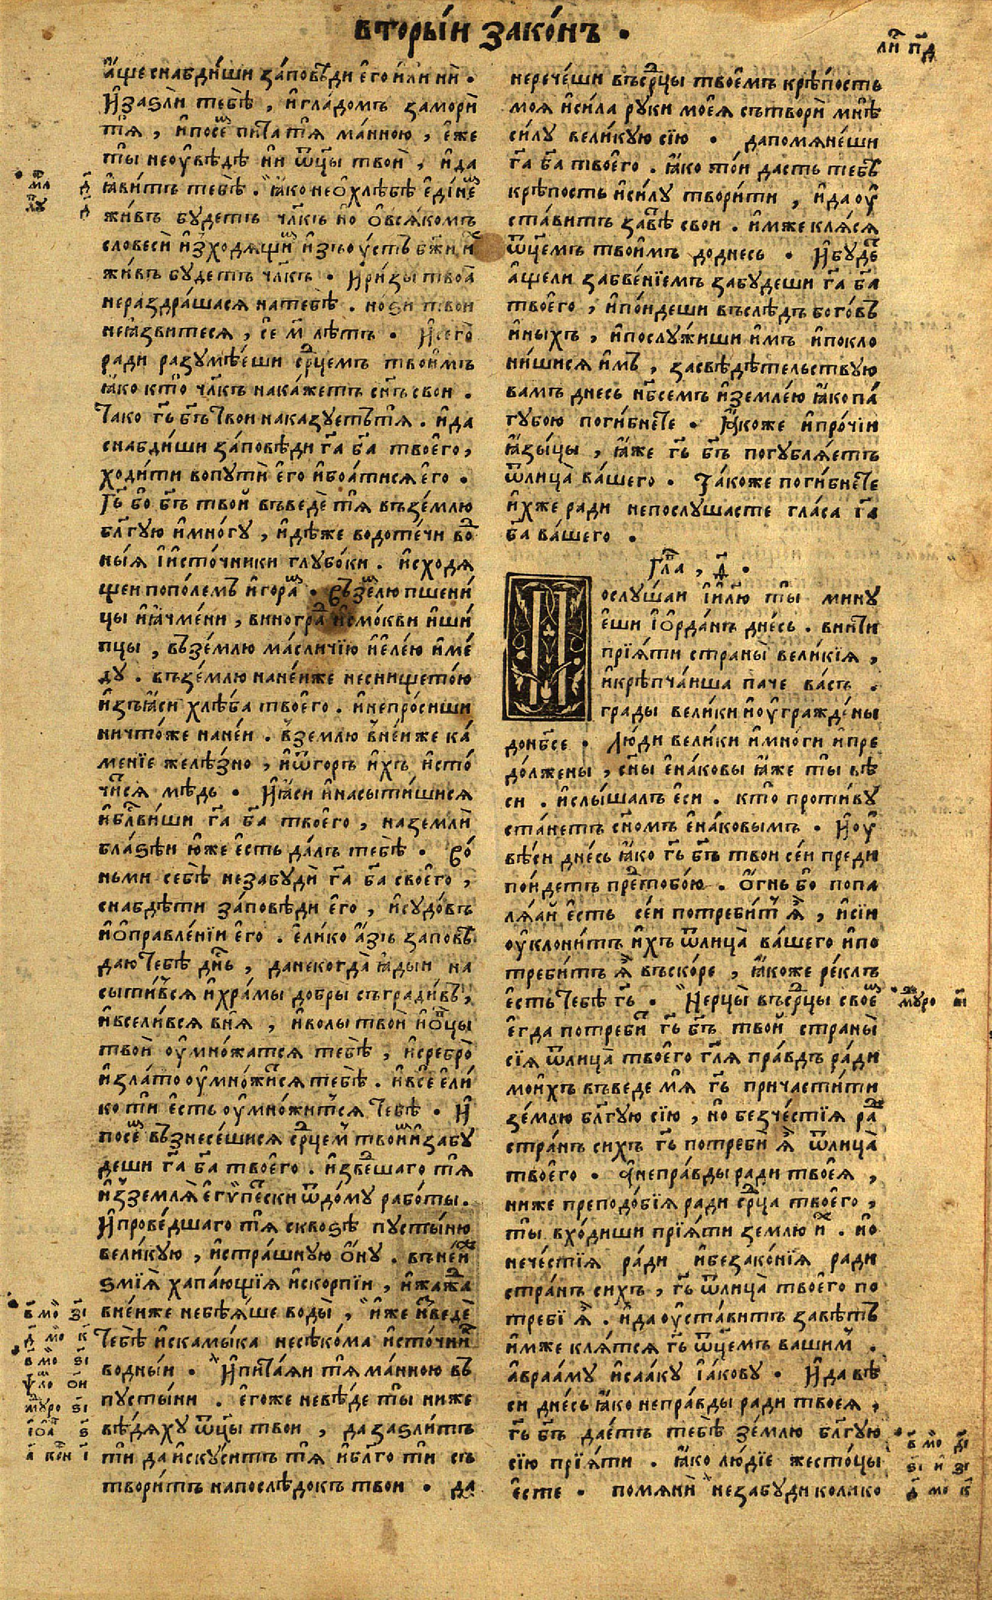 вторы́и зако́нъ .
ли҃ п҃д
а҆́ще снабди́ши за́повѣди е҆го и҆ли нѝ .
И҆ заѕли тебѐ , и҆ гла́домъ замори̂
тѧ̀ , и҆ посе҆м пита тѧ̀ ма́нною , е҆́же
ты̀ не оу҆вѣ́дѣ ни ѿц҃ы твоѝ , и҆ да
ꙗ҆ви́тъ тебѣ̀ . ꙗ҆́ко не о хлѣ́бѣ е҆ди́не
жи́въ бу́детъ чл҃къ но о҆ вся́комъ
словесѝ и҆зходя́щи и҆зъо у҆стъ бж҃и
жи́въ бу́детъ чл҃къ . И҆ ри́зы твоа̀
нераздра́шася на тебѣ̀ . но́ѕи твои
не ꙗ҆́звитеся , се м҃ лѣ́тъ . И҆ сего̀
ради разумѣ́еши ср҃цемъ твои́мъ
ꙗ҆́ко кто̀ чл҃къ нака́жетъ сн҃ъ свои .
та́ко г҃ь б҃гъ твои нака́зуетъ тѧ̀ . и҆ да
снабди́ши за́повѣди г҃а б҃а твоего̀ ,
ходи́ти во путѝ е҆го и҆ боя́тися е҆го .
г҃ь бо б҃гъ твой въведѐ тѧ̀ въ зе́млю
бл҃гую и҆ мно́гу , и҆дѣ́же водоте́чи во
ны́я и҆ и҆сто́чники глубо́ки . и҆сходя
щеи по поле́мъ и҆ гора . Въ зе́лю пшени́
цы и҆ ꙗ҆чме́ни , виногра и҆ смо́кви и҆ ши́
пцы , въ зе́млю ма́сличїю и҆ е҆ле́ю и҆ ме́
ду . въ зе́млю на не́иже не снището́ю
и҆зъꙗ҆си хлѣ́ба твоего . и҆ не про́сиши
ничто́же на не́и . в зе́млю в не́иже ка́
менїе желѣ́зно , и҆ ѿ го́ръ и҆́хъ и҆сто́
чи́ся мѣ́дь . И҆ ꙗ҆си и҆ насы́тишися
и҆ бл҃вѝши г҃а б҃а твоего̀ , на землѝ
бла́ѕѣи ю҆же е҆сть да́лъ тебѣ̀ . Во́
ньми себѣ̀ не забудѝ г҃а б҃а своего̀ ,
снабдѣ́ти за́повѣди е҆го , и҆ судо́въ
и҆ о҆правле́нїи е҆го . е҆ли́ко а҆́зъ запов
даю тебѣ̀ дн҃ь , да некогда̀ ꙗ҆ды́и на
сыти́вся и҆ хра́мы добры съгради́въ ,
и҆ всели́вся в ня̀ , и҆ волы твои и҆ о҆вцы
твоѝ оу҆мно́жатся тебѣ̀ , и҆ сребро̀
и҆ зла́то оу҆мно́жися тебѣ̀ . и҆ всѐ е҆ли́
ко ти е҆сть оу҆мно́житься тебѣ̀ . И҆
посе възнесе́шися ср҃цем твои и҆ забу
деши г҃а б҃а твоего . и҆зве́шаго тѧ̀
и҆з землѧ̀ е҆гѵ́петски ѿ до́му рабо́ты .
И҆ прове́дшаго тѧ̀ сквоѕѣ̀ пусты́ню
вели́кую , и҆ стра́шную о҆́ну . въ не́и
ѕмїя̀ хапа́ющїя и҆ скорпїи , и҆ жажа
в не́иже не бѣ́яше воды̀ , и҆́же и҆зведѐ
тебѣ̀ и҆с ка́мыка несѣ́кома и҆сто́чни
во́дныи . И҆ пита́яи тѧ̀ ма́нною въ
пусты́ни . е҆го́же не вѣ́де ты̀ ниже
вѣ́дяху ѿц҃ы твои , да заѕли́тъ
тѝ да и҆ску́ситъ тѧ̀ и҆ бл҃го ти съ
твори́тъ напослѣ́докъ твои . да
не рече́ши въ ср҃цы твое́мъ крѣ́пость
моя и҆ си́ла руки̂ моея̀ сътвори̂ мнѣ̀
си́лу вели́кую сїю̀ . да помяне́ши
г҃а б҃а твоего . ꙗ҆́ко то́и дасть тебѣ̀
крѣ́пость и҆ си́лу твори́ти , и҆ да оу
ста́витъ завѣ свои . и҆́мже кля́ся
ѿц҃емъ твои́мъ до днесь . И҆ бу́де
а҆́щели забве́нїемъ забу́деши г҃а б҃а
твоего̀ , и҆ по́идеши въ слѣ́дъ бого́въ
и҆ны́хъ , и҆ послу́жиши и҆́мъ и҆ покло
ни́шися и҆́мъ , засвѣдѣ́тельствую
вамъ днесь нб҃семъ и҆ земле́ю ꙗ҆́ко па́
губою поги́бнете . Ꙗ҆́коже и҆ про́чїи
ꙗ҆зы́цы , ꙗ҆̀же г҃ь б҃гъ погубля́етъ
ѿ лица̀ ва́шего . Та́коже поги́бнете
и҆́хже ради не послу́шасте гла́са г҃а
б҃а ва́шего .
гла , д҃ .
Послу́шаи і҆и҃лю ты̀ мину
еши і҆о҆рда́нъ дне́сь . вни́ти
прїя́ти страны̀ вели́кїя ,
и҆ крѣпча́иша паче ва́съ .
грады вели́ки и҆ оу҆гражде́ны
до нб҃се . лю́ди вели́ки и҆ мно́ги и҆ пре
до́лжены , сн҃ы е҆на́ковы ꙗ҆̀же ты̀ вѣ
си . и҆ слы́шалъ е҆си . кто̀ проти́ву
ста́нетъ сн҃омъ е҆на́ковымъ . И҆ оу
вѣ́си дне́сь ꙗ҆́ко г҃ь б҃гъ твои се́и преди
по́идетъ пре тобо́ю . О҆́гнь бо попа
ля́яй е҆сть се́и потреби́т ꙗ҆̀ , и҆ сїи
оу҆клони́тъ и҆́хъ ѿ лица̀ ва́шего и҆ по
треби́тъ ꙗ҆̀ въско́ре , ꙗ҆́коже ре́клъ
е҆сть тебѣ̀ г҃ь . Не рцы̀ въ ср҃цы свое
е҆гда̀ потребѝ г҃ь б҃гъ твои̂ страны̀
сїя ѿ лица̀ твоего гл҃я пра́вдъ ра́ди
мои́хъ въведе мѧ̀ г҃ь причасти́ти
зе́млю бл҃гую сїю , но безче́стїя ра
стра́нъ сихъ г҃ь потребѝ ꙗ҆̀ ѿ лица̀
твоего̀ . Не пра́вды ра́ди твоея̀ ,
ниже преподо́бїя ради ср҃ца твоего̀ ,
ты̀ вхо́диши прїя́ти землю̀ и . но
нече́стїя ради и҆ безако́нїя ради
стра́нъ сихъ , г҃ь ѿ лица̀ твоего̀ по
требѝ ꙗ҆̀ . и҆ да оу҆ста́витъ завѣ́тъ
и҆́мже кля́тся г҃ь ѿц҃емъ вашим .
а҆враа́му и҆саа́ку і҆а́кову . И҆ да вѣ
си дне́сь ꙗ҆́ко не пра́вды ради твоея ,
г҃ь б҃гъ дае́тъ тебѣ̀ зе́млю бл҃гую
сїю прїя́ти . ꙗ҆́ко лю́дїе жестоцы
е҆сте . помянѝ не забуди коли́ко